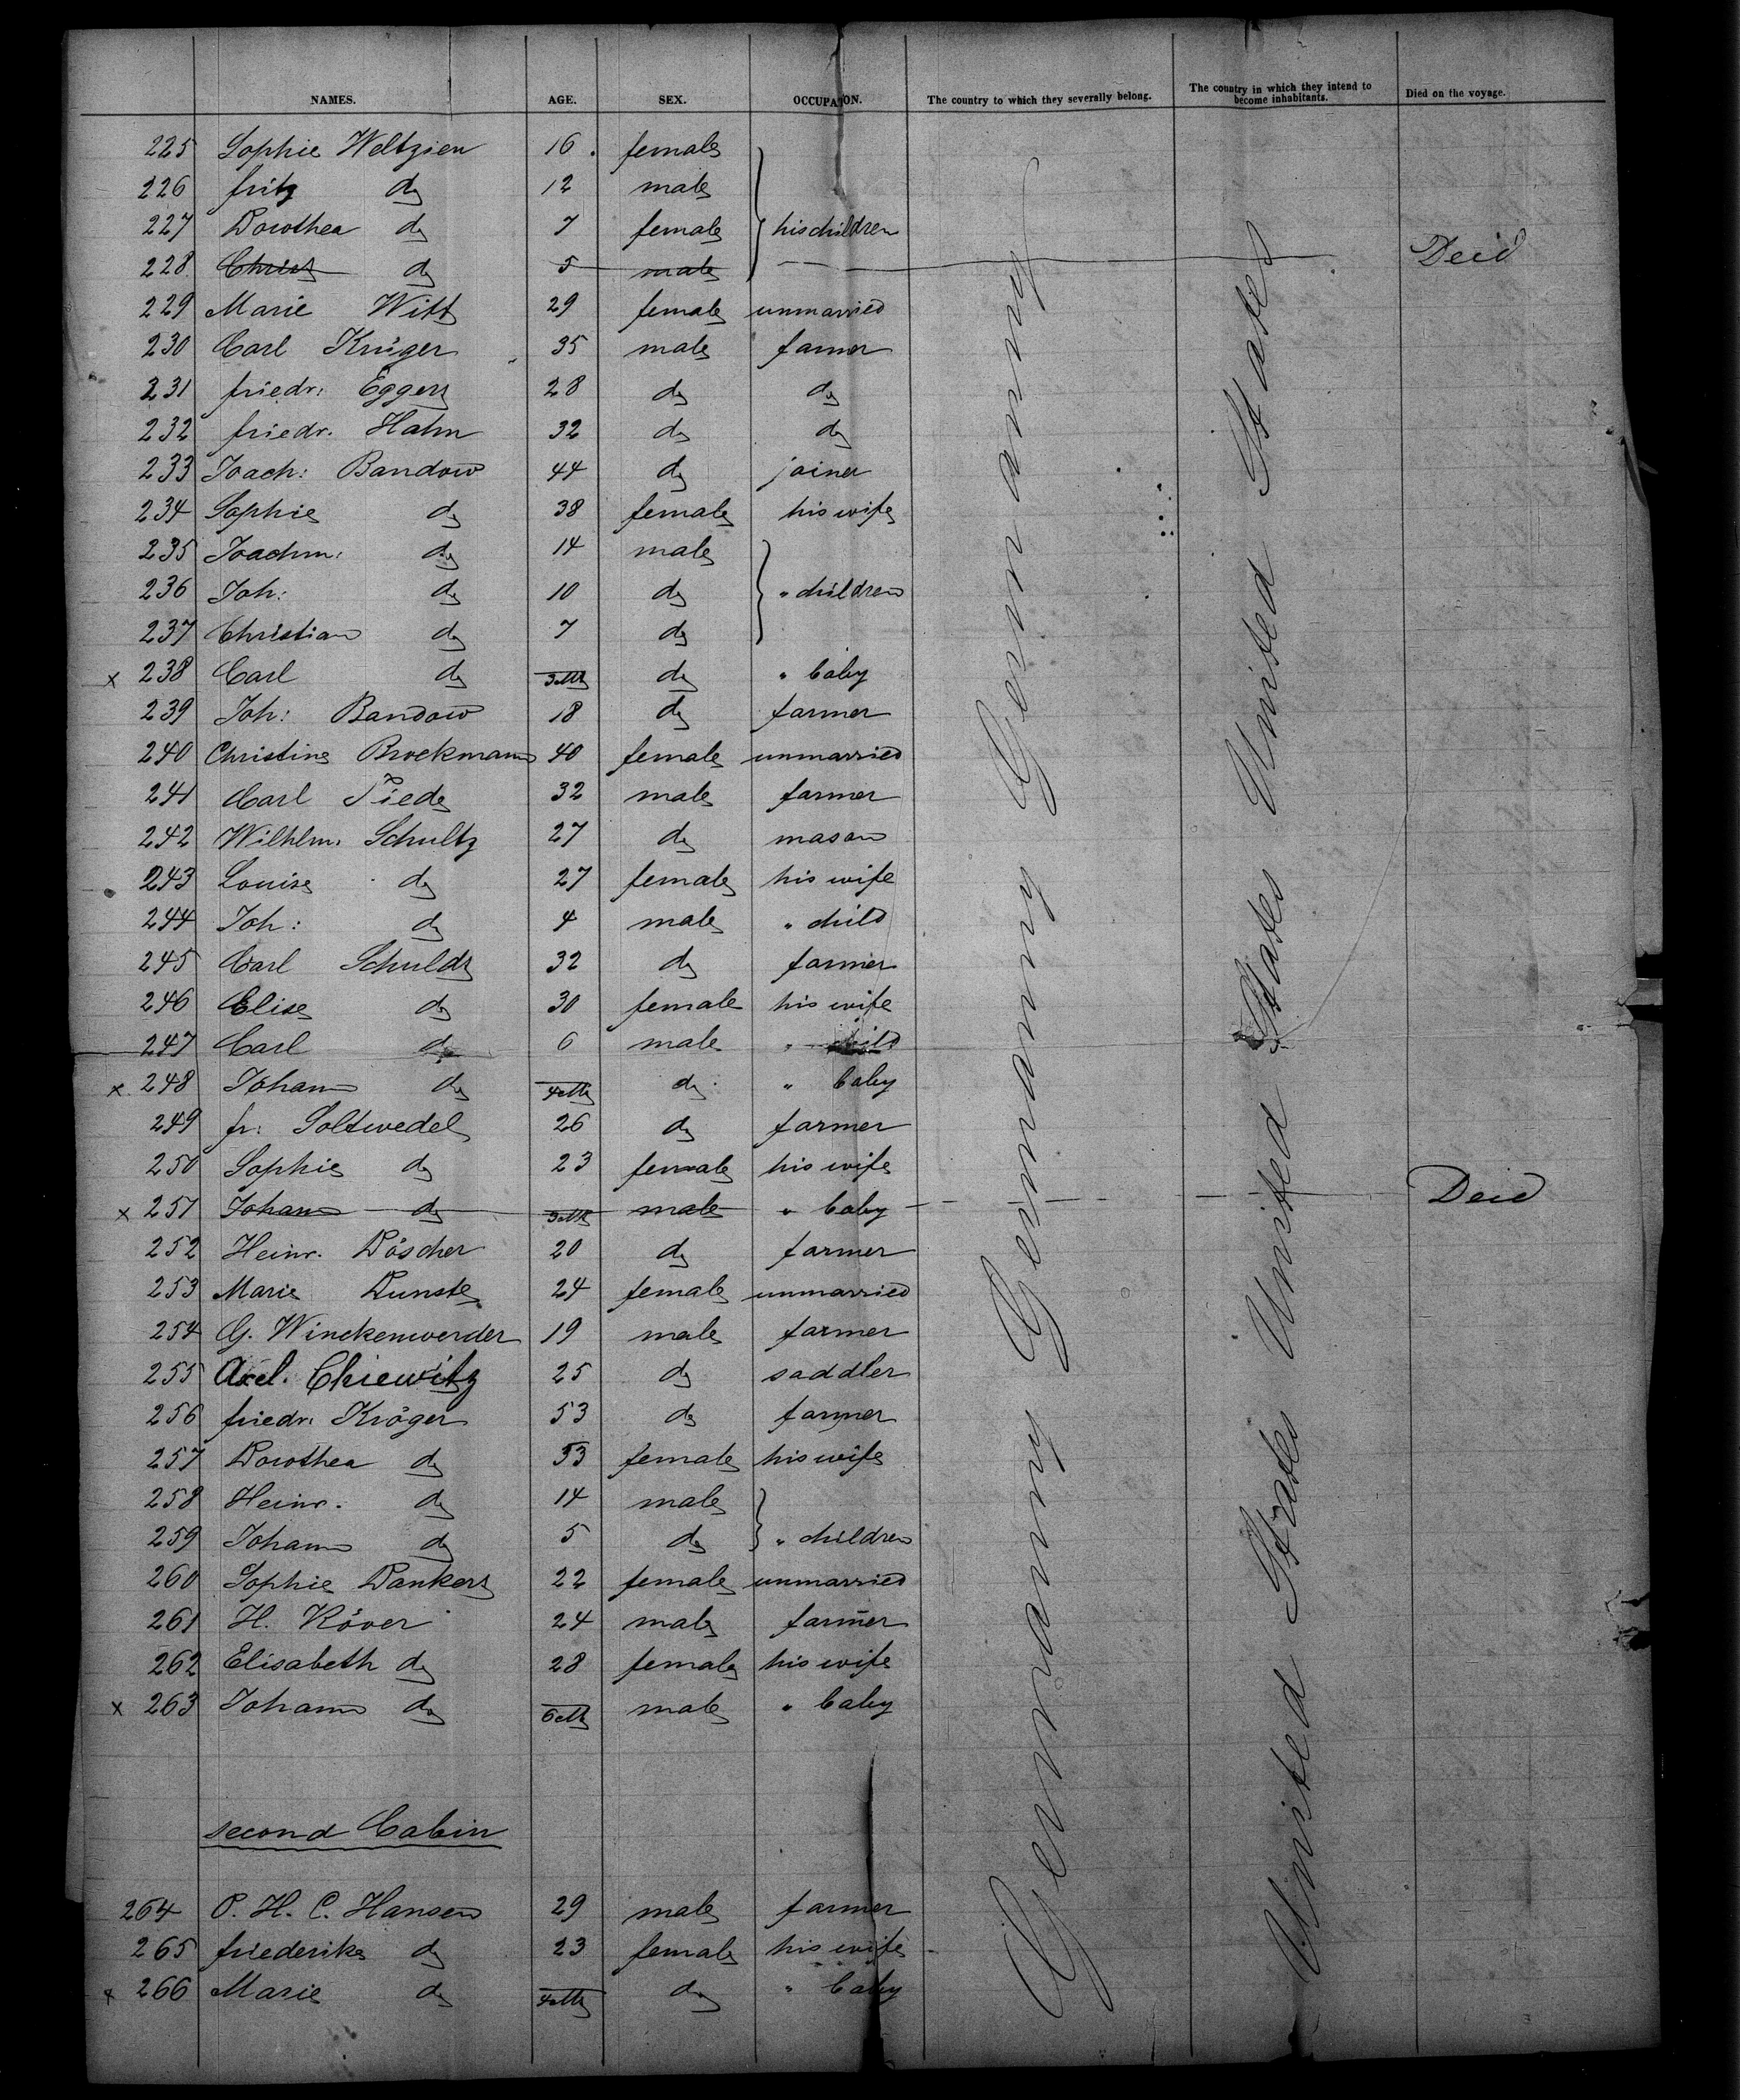 NAMES. AGE. SEX. OCCUPATION. The country to which they severally belong. The country in which they intend to become inhabitants. Died on the voyage.
225 Sophie Weltzien 16 female
226 fritz do 12 male
227 Dorothea do 7 female his children
228 Christ do 5 male Deid
229 Marie Witt 29 female unmarried
230 Carl Krüger 35 male farmer
231 friedr: Eggers 28 do do
232 friedr. Hahn 32 do do
233 Joach: Bandow 44 do joiner
234 Sophie do 38 female his wife
235 Joachm: do 14 male
236 Joh: do 10 do " children
237 Christian do 7 do
x 238 Carl do do " baby
239 Joh: Bandow 18 do farmer
240 Christine Brockmann 40 female unmarried
241 Carl Tiede 32 male farmer
242 Wilhlm. Schultz 27 do mason
243 Louise do 27 female his wife
244 Joh: do 4 male " child
245 Carl Schuldt 32 do farmer
246 Elise do 30 female his wife
247 Carl do 6 male " child
x 248 Johann do do " baby
249 fr: Soltwedel 26 do farmer
250 Sophie do 23 female his wife
x 251 Johann do male " baby Deid
252 Heinr. Döscher 20 do farmer
253 Marie Dunste 24 female unmarried
254 G. Winckenwerder 19 male farmer
255 Axel. Chiewitz 25 do saddler
256 friedr: Kröger 53 do farmer
257 Dorothea do 53 female his wife
258 Heinr. do 14 male
259 Johann do 5 do " children
260 Sophie Dankers 22 female unmarried
261 H. Röver 24 male farmer
262 Elisabeth do 28 female his wife
x 263 Johann do male " baby
second Cabin
264 P. H. C. Hansen 29 male farmer
265 friederike do 23 female his wife
x 266 Marie do do " baby
Germany Germany Germany
United States United States United States